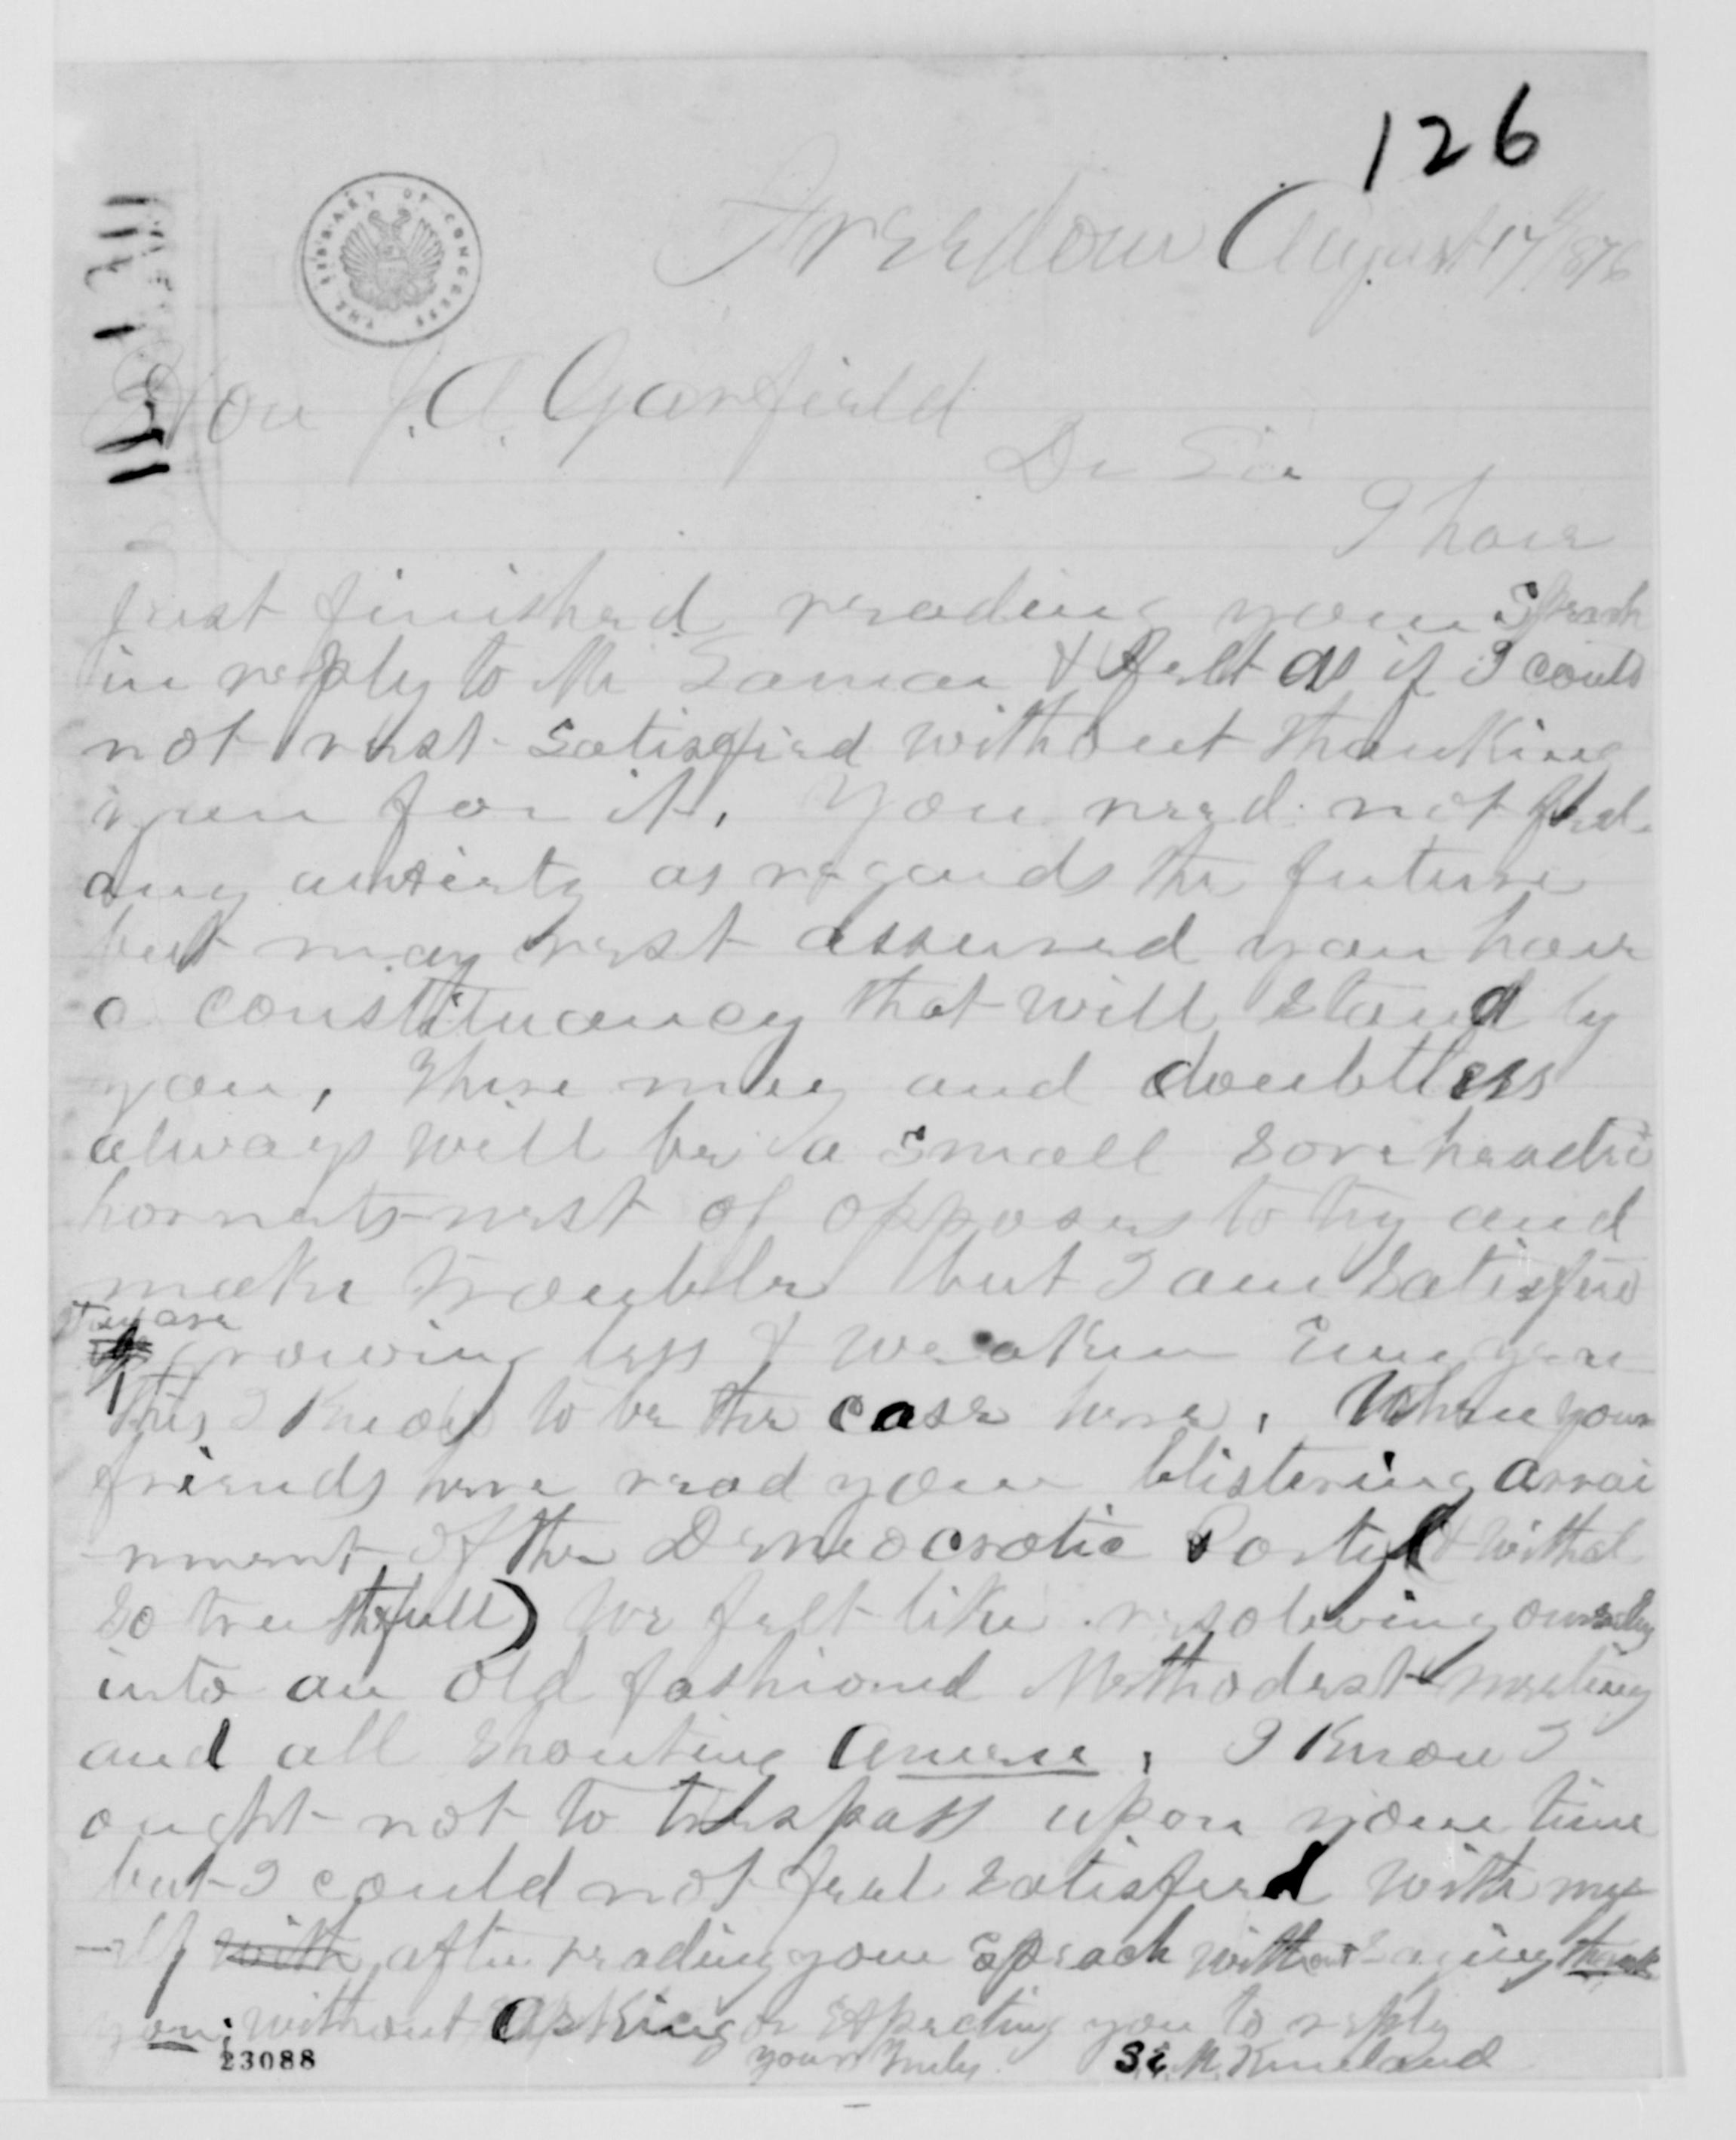 126
THE LIBRARY OF CONGRESS
Freedom August 17/1876
Hon J. A. Garfield
Dr Sir
I have
just finished reading your Speach
in reply to Mr Lamar & felt as if I could
not rest satisfied without thanking
you for it. You need not feel
any anxiety as regards the future
but may rest assured you have
a constituancy that will stand by
you, there may and doubtless
always will be a small soreheaded
hornets nest of opposers to try and
make trouble but I am satisfied
they are
growing less & weaker Every year
this I know to be the case here. When your
friends here read your blistering arrai
-nment of the Democratic Party (& withal
so truthfull) we felt like resolveing ourselves
into an old fashioned Methodest meeting
and all shouting Amen. I know I
ought not to trespass upon your time
but I could not feel satisfied with my-
-self with after reading your Speach without saying thank
you; without asking or Expecting you to reply
yours Truly S. M. Kneeland
23088